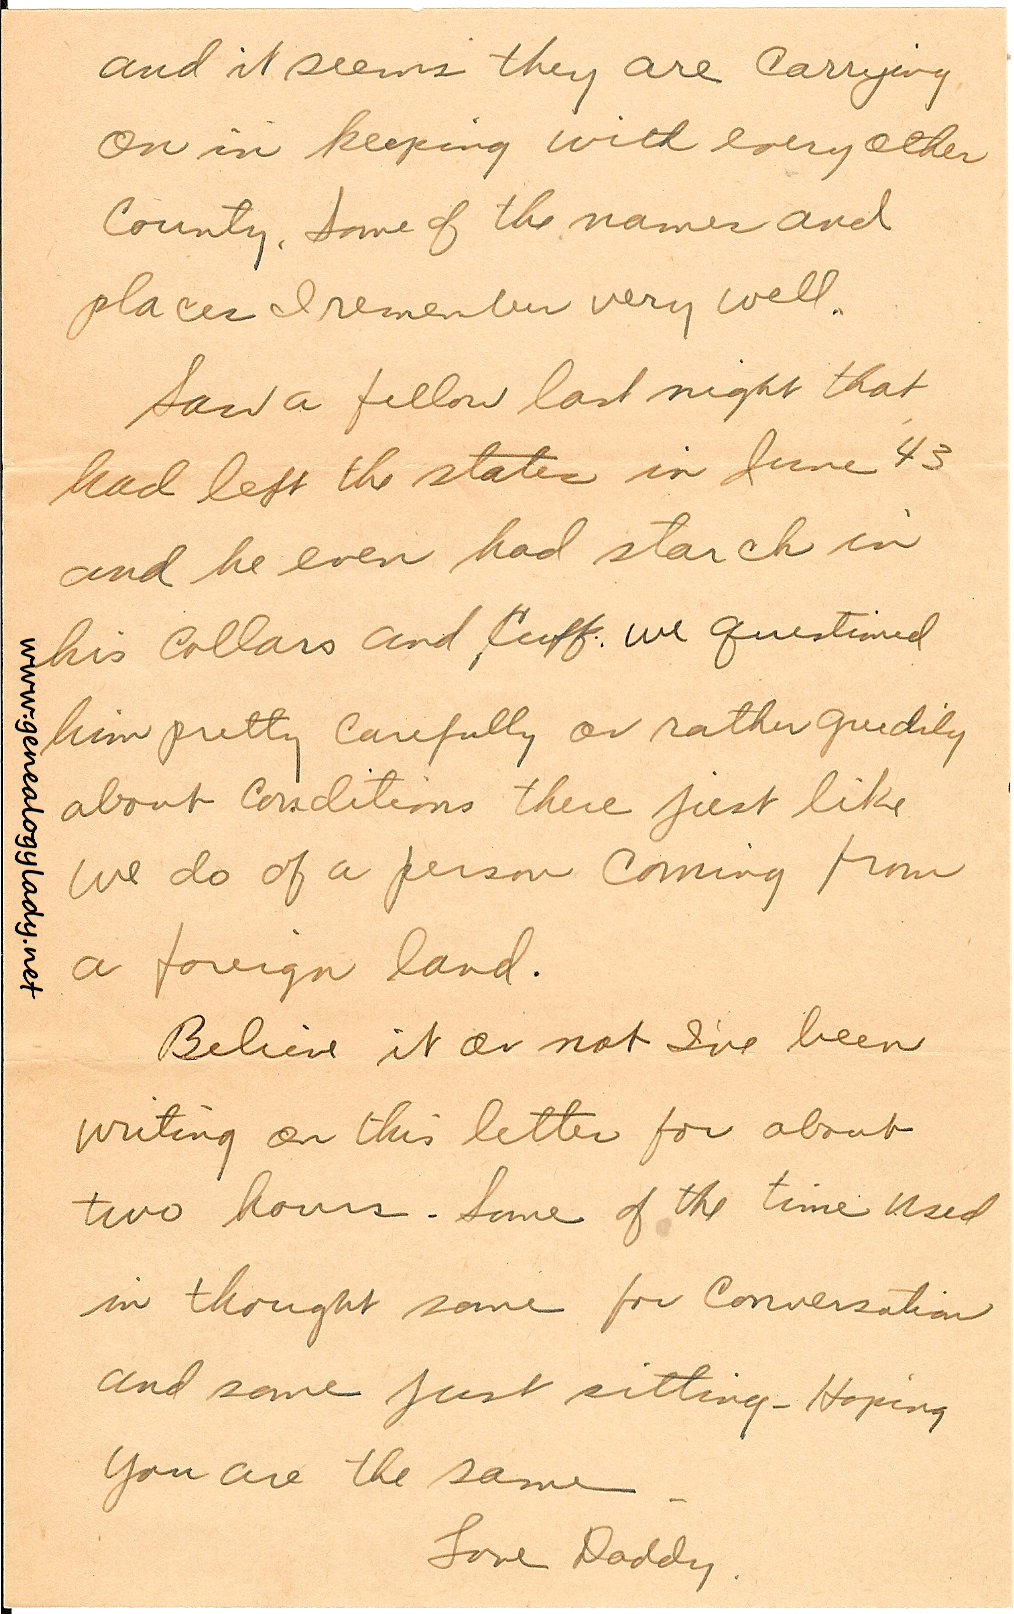 and it seems they are carrying
on in keeping with every other
County. Some of the names and
places I remember very well.
Saw a fellow last night that
had left the states in June 43
and he even had starch in
his collars and cuff. we questioned
him pretty carefully or rather greedily
about conditions there just like
we do of a person coming from
a foreign land.
Believe it or not I've been
writing on this letter for about
two hours - Some of the time used
in thought some for conversation
and some just sitting - Hoping
you are the same -
Love Daddy.
www.genealogylady.net